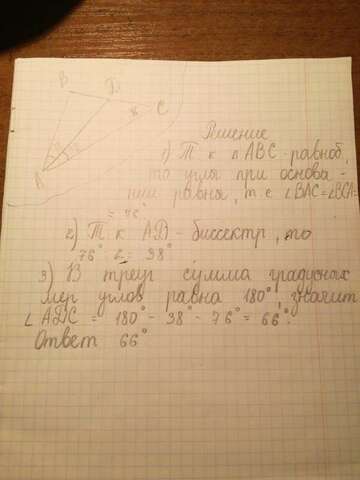 B
D
C
A
Решение
1) Т к Δ ABC - равноб,
то углы при основа-
нии равны, т.е ∠BAC=∠BCA=
= 76°
2) Т к AD - биссектр, то
76° : 2 = 38°
3) В треуг сумма градусных
мер углов равна 180°, значит
∠ ADC = 180° - 38° - 76° = 66°.
Ответ 66°